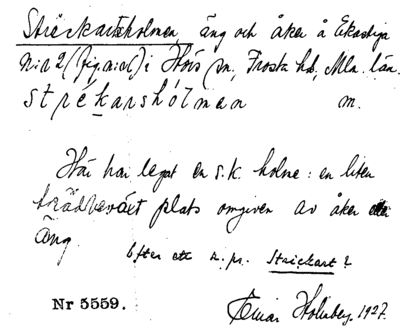 Strickartsholmen, äng och åker å Ekastiga
N:r 2 i Hörs sn, Frosta hd, Mlm. län.
strékarshólmen m.
Här har legat en s.k. holme: en liten
trädbeväxt plats omgiven av åker eller
äng.
Efter ett n. pr. Strickart?
Nr 5559. Einar Holmberg. 1927.